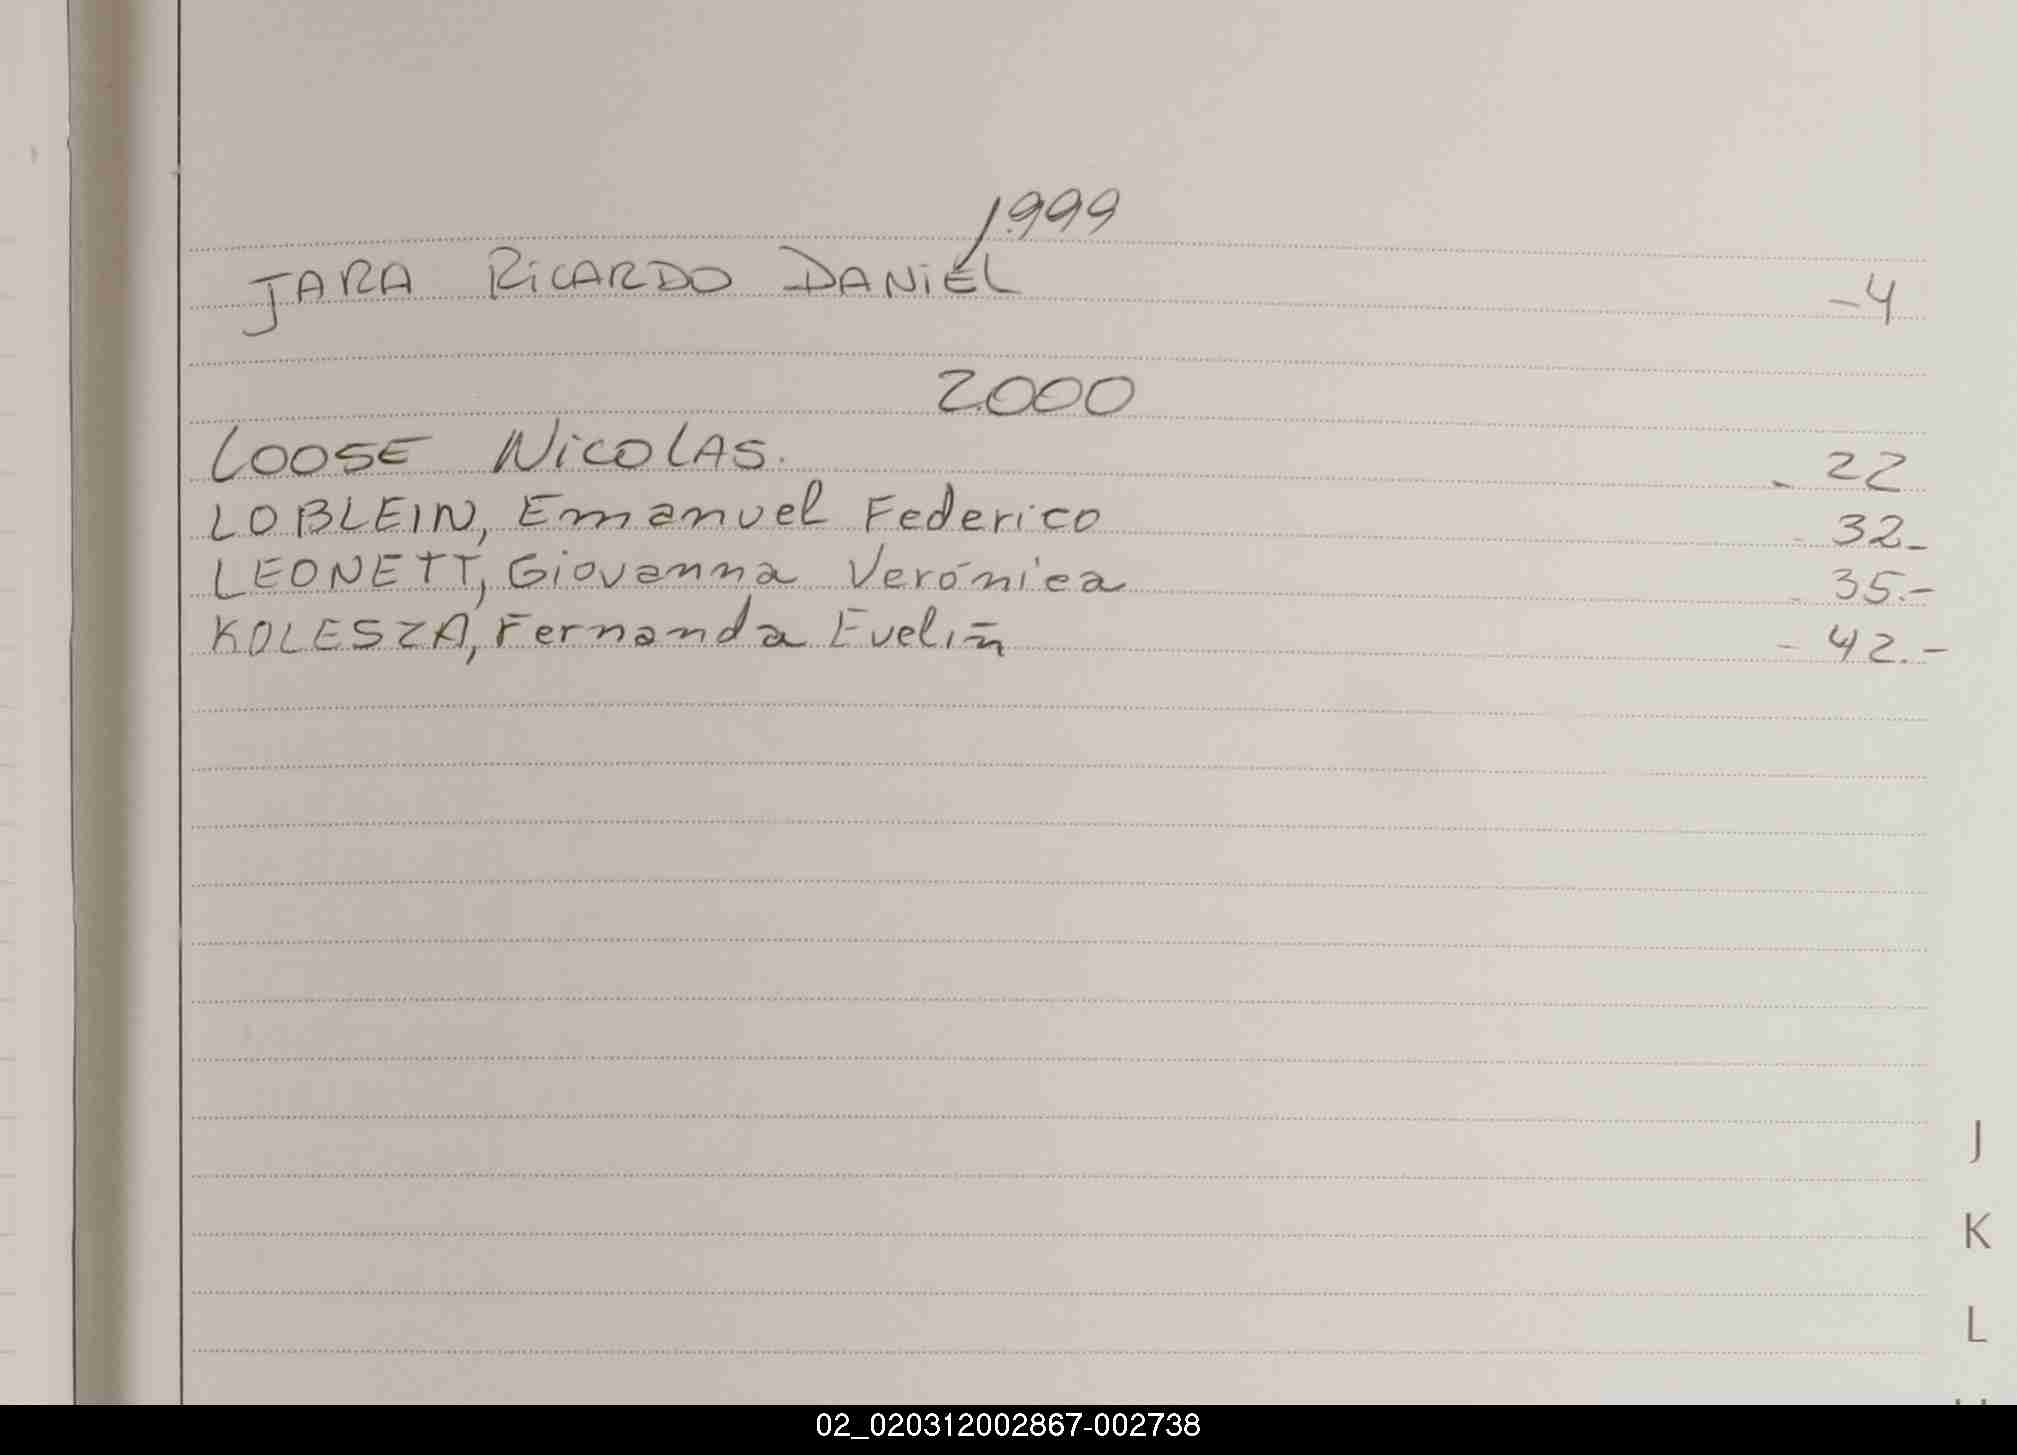 1.999
JARA RICARDO DANIEL -4
2.000
LOOSE NICOLAS. - 22
LOBLEIN, Emanuel Federico - 32_
LEONETT, Giovanna Verónica - 35.-
KOLESZA, Fernanda Evelin - 42.-
J
K
L
02_020312002867-002738